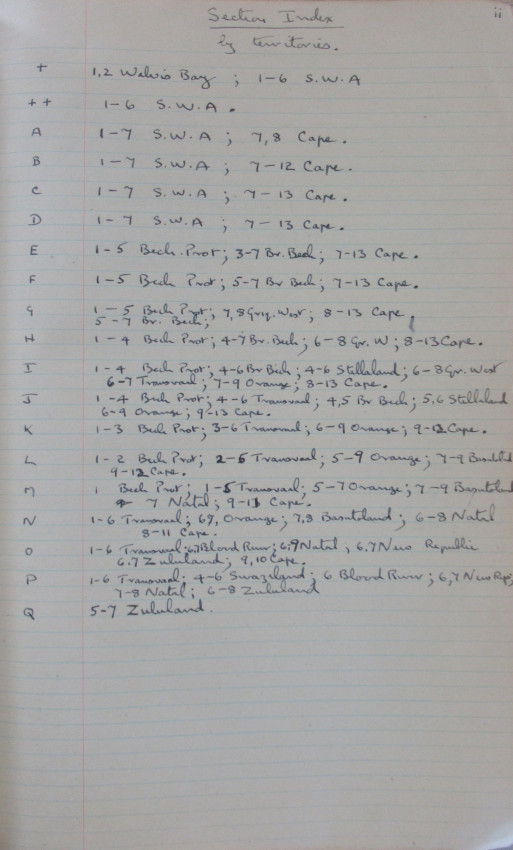 ii
Section Index
by territories.
+ 1,2 Walvis Bay ; 1-6 S.W.A
++ 1-6 S.W.A.
A 1-7 S.W.A ; 7,8 Cape.
B 1-7 S.W.A ; 7-12 Cape.
C 1-7 S.W.A ; 7-13 Cape.
D 1-7 S.W.A ; 7-13 Cape.
E 1-5 Bech. Prot ; 3-7 Br. Bech ; 7-13 Cape.
F 1-5 Bech Prot ; 5-7 Br Bech ; 7-13 Cape.
G 1-5 Bech Prot ; 7,8 Griq. West ; 8-13 Cape
5-7 Br. Bech ;
H 1-4 Bech Prot ; 4-7 Br. Bech ; 6-8 Gr. W ; 8-13 Cape.
I 1-4 Bech Prot ; 4-6 Br Bech ; 4-6 Stellaland ; 6-8 Gr. West
6-7 Transvaal ; 7-9 Orange ; 8-13 Cape.
J 1-4 Bech Prot ; 4-6 Transvaal ; 4,5 Br Bech ; 5,6 Stellaland
6-9 Orange ; 9-13 Cape.
K 1-3 Bech Prot ; 3-6 Transvaal ; 6-9 Orange ; 9-12 Cape.
L 1-2 Bech Prot ; 2-6 Transvaal ; 5-9 Orange ; 7-9 Basutoland
9-12 Cape.
M 1 Bech Prot ; 1-5 Transvaal ; 5-7 Orange ; 7-9 Basutoland
7 Natal ; 9-11 Cape.
N 1-6 Transvaal ; 6,7, Orange ; 7,8 Basutoland ; 6-8 Natal
8-11 Cape.
O 1-6 Transvaal ; 6,7 Blood River ; 6,9 Natal , 6,7 New Republic
6,7 Zululand ; 9,10 Cape.
P 1-6 Transvaal ; 4-6 Swaziland ; 6 Blood River ; 6,7 New Rep ;
7-8 Natal ; 6-8 Zululand
Q 5-7 Zululand.